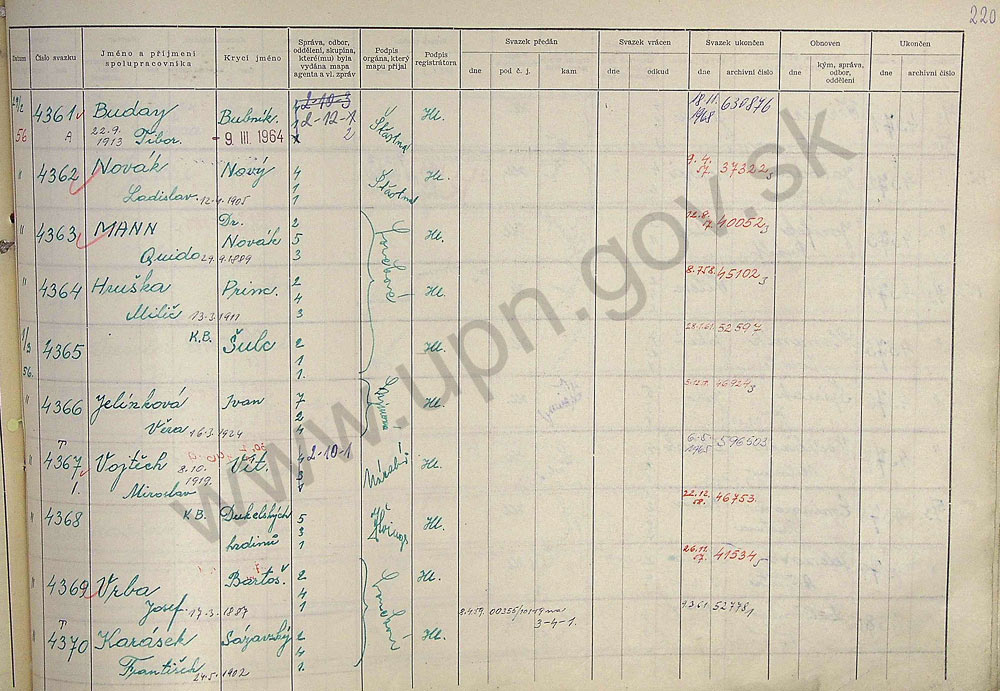 220
Datum
Číslo svazku
Jméno a příjmení
spolupracovníka
Krycí jméno
Správa, odbor,
oddělení, skupina,
které(mu) byla
vydána mapa
agenta a vl. zpráv
Podpis
orgána, který
mapu přijal
Podpis
registrátora
Svazek předán
dne
pod č. j.
kam
Svazek vrácen
dne
odkud
Svazek ukončen
dne
archivní číslo
Obnoven
dne
kým, správa,
odbor,
oddělení
Ukončen
dne
archivní číslo
56 4361 Buday Bubník. 4 2-10-3 Hl. 18.11. 630876
A 22.9. 1913 Tibor. - 9. III. 1964 1 2-12-1 Šťastná 1968
x 2
" 4362 Novák Nový 4 Šťastná Hl. 9. 4. 57. 37322
Ladislav 12.4.1905 1
1
" 4363 MANN Dr. 2 Hl. 12.8. 40052
Novák 5
Quido 29.9.1889 3
" 4364 Hruška Princ. 2 Hl. 8.758. 45102
Milič 13.3.1911 4
3
1/3 56. 4365 K.B. Šulc 2 Hl. 28.1.61. 52597
1
1.
" 4366 Jelínková Ivan 7 Hl. 46924
Věra 16.3.1924 2
4
T
" 4367 Vojtěch Vít 4 2-10-1 Hl. 6-5- 1965 596503
1. 8.10. 1919. 3
Miroslav
" 4368 K.B. Dukelských 5 Hl. 22.12. 58. 46753.
hrdinů 3
1
" 4369 Vrba Bartoš. 2 Hl. 26.11. 57. 41534
Josef 17.3.1887 4
1 8.4.59. 1.3.61. 52778
3-4-1.
T
" 4370 Karásek Sázavský 2 Hl.
František 24.5.1902 4
1.
www.upn.gov.sk